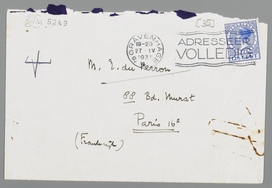 5243
'S GRAVENHAGE
18-20
27 IV
193
ADRESSEER
VOLLEDIG
M. E. du Perron
88 Bd. Murat
Paris 16e
(Frankrijk)